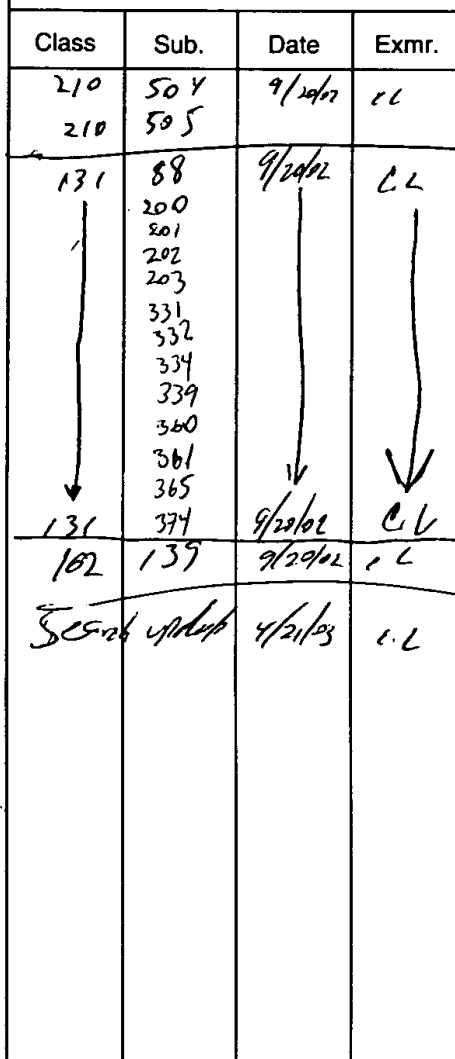 Class Sub. Date Exmr.
210 504 9/20/02 CL
210 505
131 88 9/20/02 CL
200
201
202
203
331
332
334
339
360
361
365
131 374 9/20/02 CL
162 139 9/20/02 CL
Search update 4/21/03 C.L